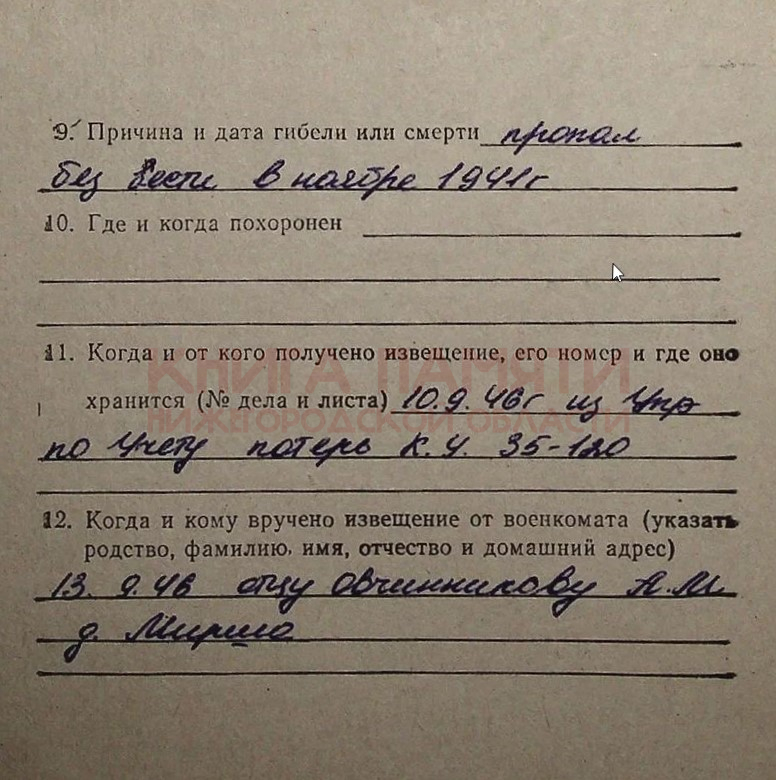 9. Причина и дата гибели или смерти пропал
без вести в ноябре 1941г
10. Где и когда похоронен
11. Когда и от кого получено извещение, его номер и где оно
КНИГА ПАМЯТИ
хранится (№ дела и листа) 10.9.46г из Упр
НИЖЕГОРОДСКОЙ ОБЛАСТИ
по учету потерь К.У. 35-120
12. Когда и кому вручено извещение от военкомата (указать
родство, фамилию, имя, отчество и домашний адрес)
13. 9.46 отцу Овчинникову А.М.
д.